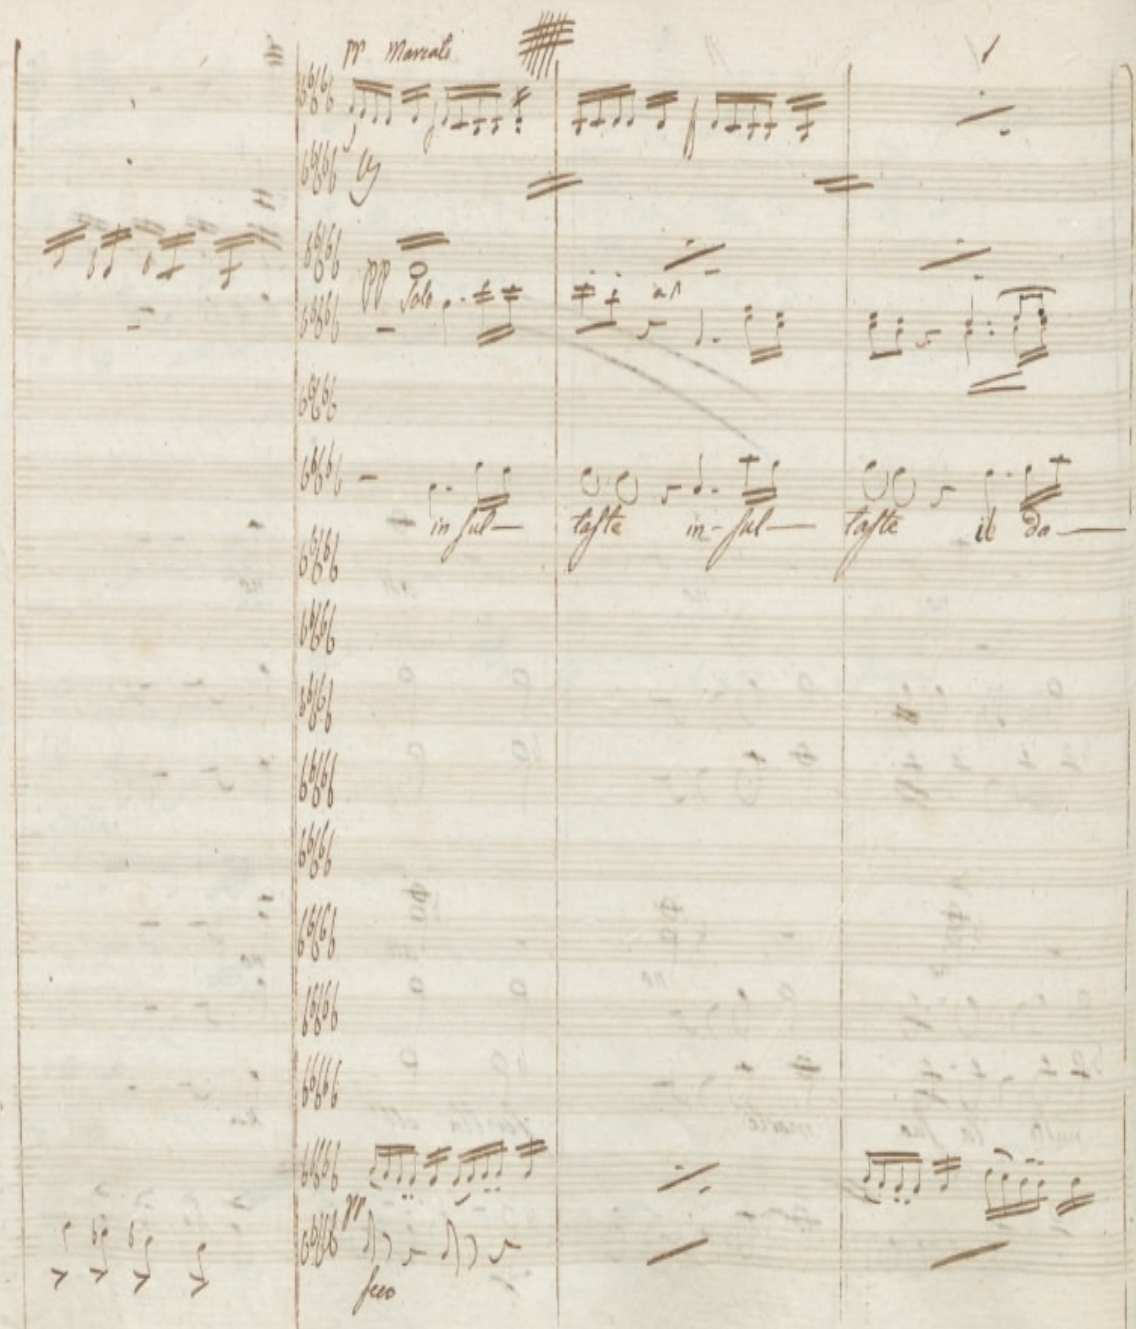 pp Marcato
pp Solo
in sul— taste in-sul— taste il da—
pp